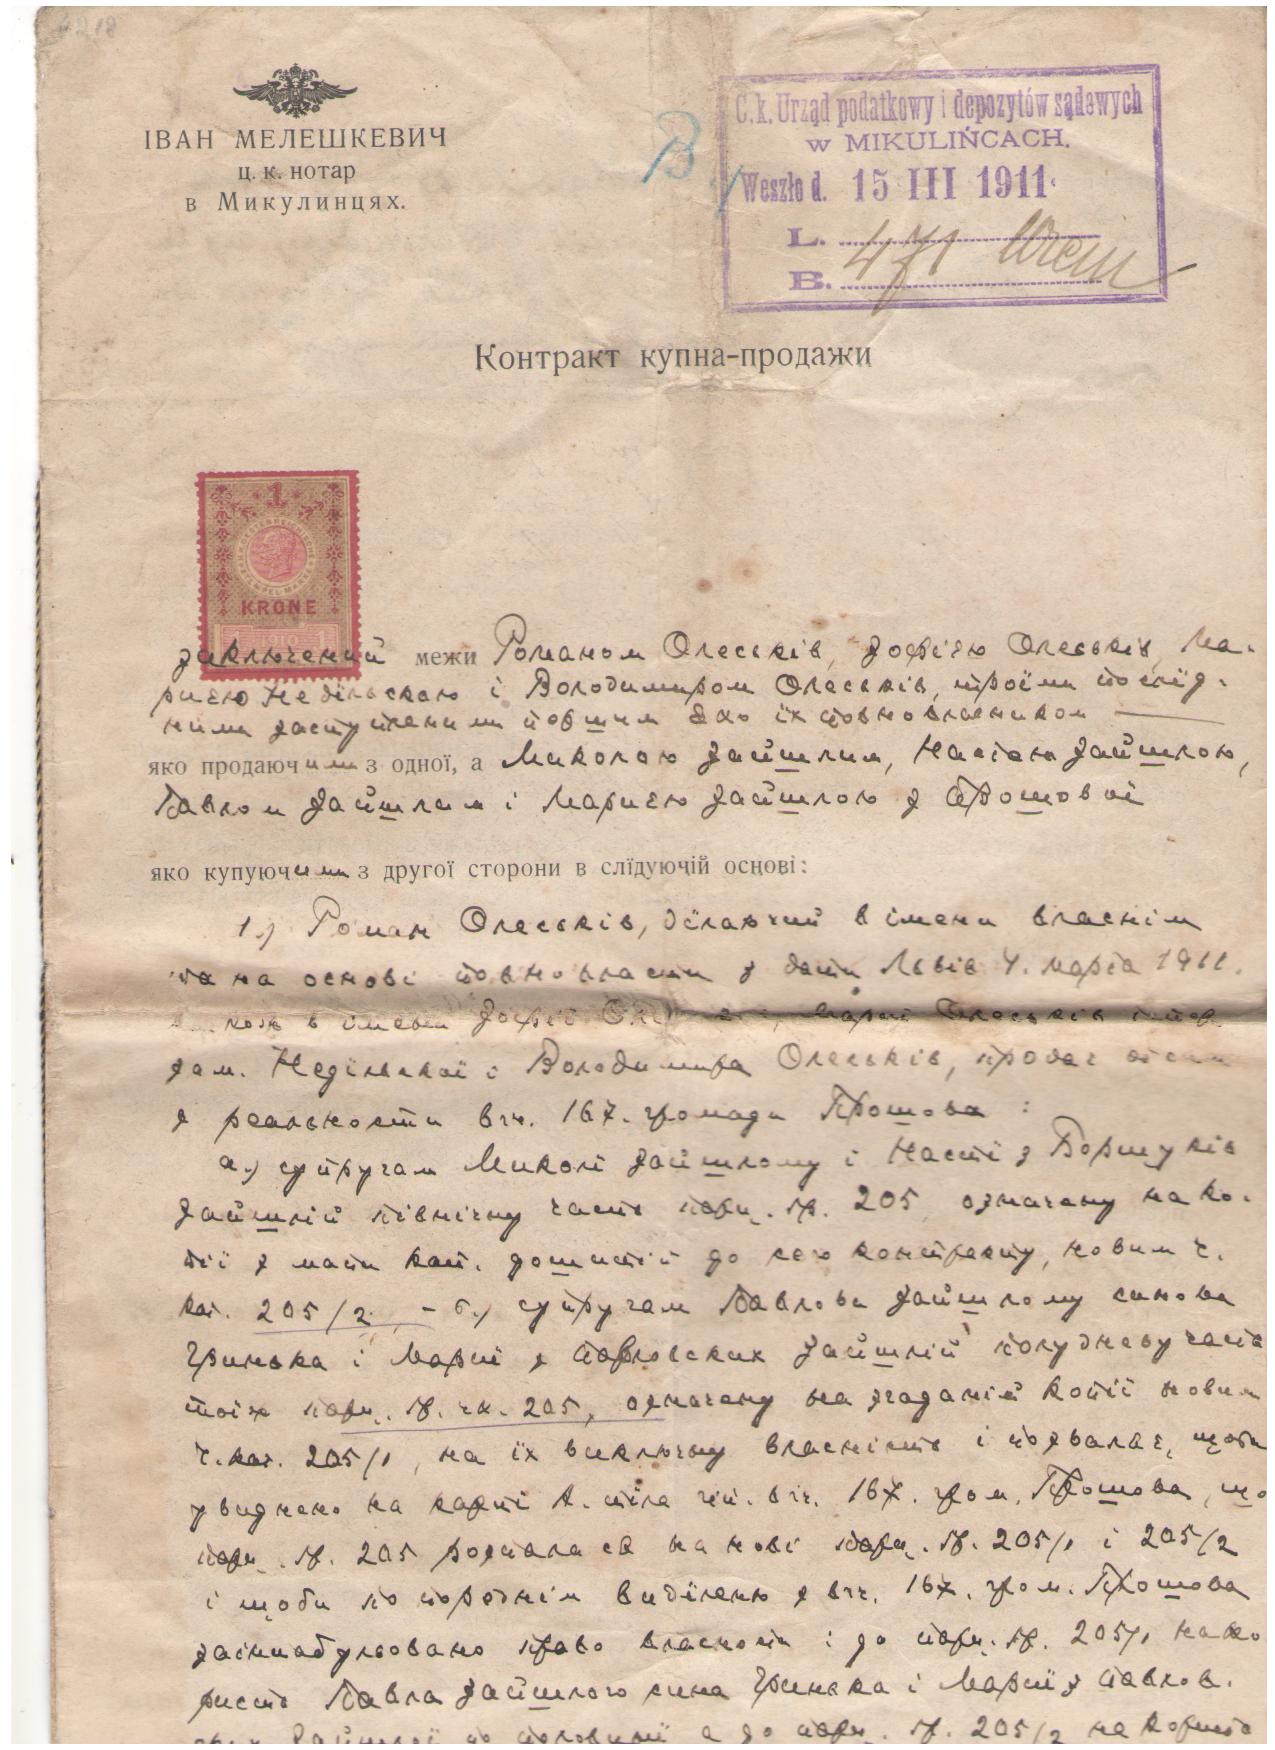 ІВАН МЕЛЕШКЕВИЧ
ц. к. нотар
в Микулинцях.
В
C. k. Urząd podatkowy i depozytów sądowych
w MIKULIŃCACH.
Weszło d. 15 III 1911
L. 471
B.
Контракт купна-продажи
1
KRONE
1910
заключений межи Романом Олеськів, Зофією Олеськів, Ма-
риєю Недїльскою і Володимиром Олеськів, троїми послїд-
ними заступленими першим яко їх повновласником
яко продаючими з одної, а Миколою Зайшлим, Настею Зайшлою,
Павлом Зайшлим і Мариєю Зайшлою з Прошової
яко купуючими з другої сторони в слїдуючій основі:
1.) Роман Олеськів, дїлаючий в імени власнім
та на основі повновласти з дати Львів 4. марта 1911.
в імени Зофії Марії Олеськів
зам. Недїльскої і Володимира Олеськів, продає
з реальности вгч. 167. громади Прошова :
а.) супругам Миколї Зайшлому і Настї з Боршуків
Зайшлій північну часть парц. гр. 205 означену на ко-
пії з мапи кат. до сего контракту, новим ч.
кат. 205/2, - б.) супругам Павлови Зайшлому синови
Гринька і Марії з Павловских Зайшлій полудневу часть
тоїж парц. гр. чк. 205, означену на згаданій копії новим
ч. кат. 205/1, на їх виключну власність і позваляє, щоби
увиднено на картї А. тїла гіп. вгч. 167. гром. Прошова, що
парц. гр. 205 розпала ся на нові парц. гр. 205/1 і 205/2
і щоби по попереднім видїленю з вгч. 167. гром. Прошова
заінтабульовано право власности і до парц. гр. 205/1 на ко-
ристь Павла Зайшлого сина Гринька і Марії з Павлов-
ских Зайшлої по половинї а до парц. гр. 205/2 на користь